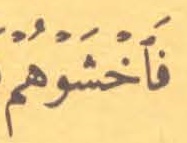 فَٱخۡشَوۡهُمۡ